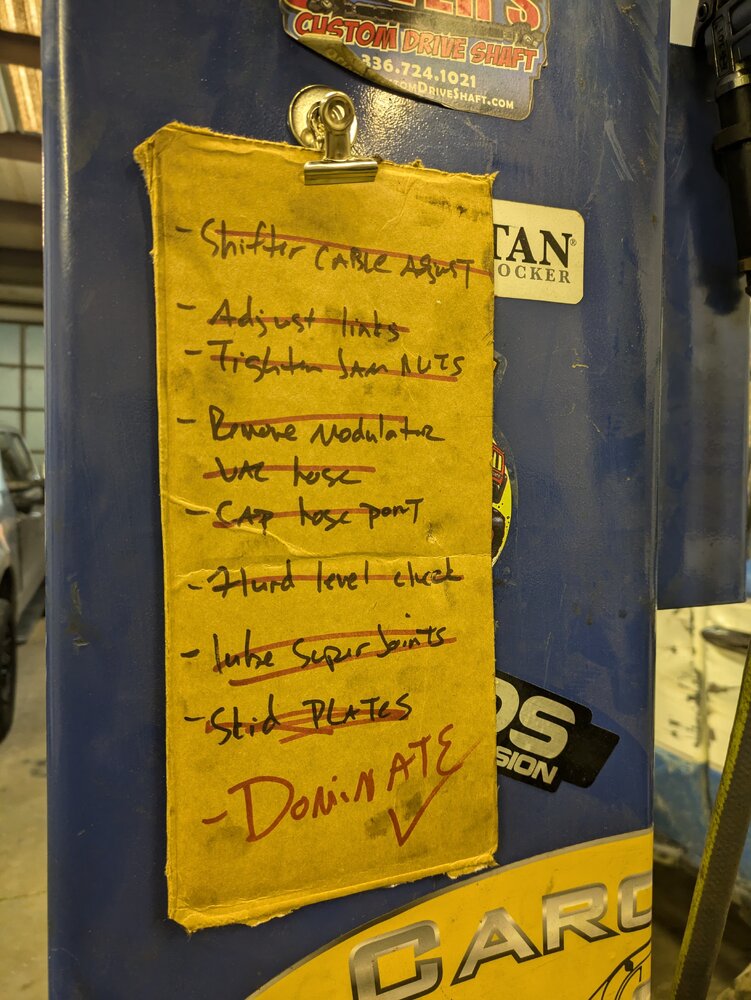 CUSTOM DRIVE SHAFT
336.724.1021
TOMDRIVESHAFT.COM
TAN®
OCKER
- Shifter CABLE AdJUST
- Adjust links
- Tighten JAM NUTS
- Remove Modulator
VAC hose
- CAP hose porT
- Fluid level check
- lube Super Joints
- Skid PLATES
- DOMINATE ✓
OS
SION
CARO